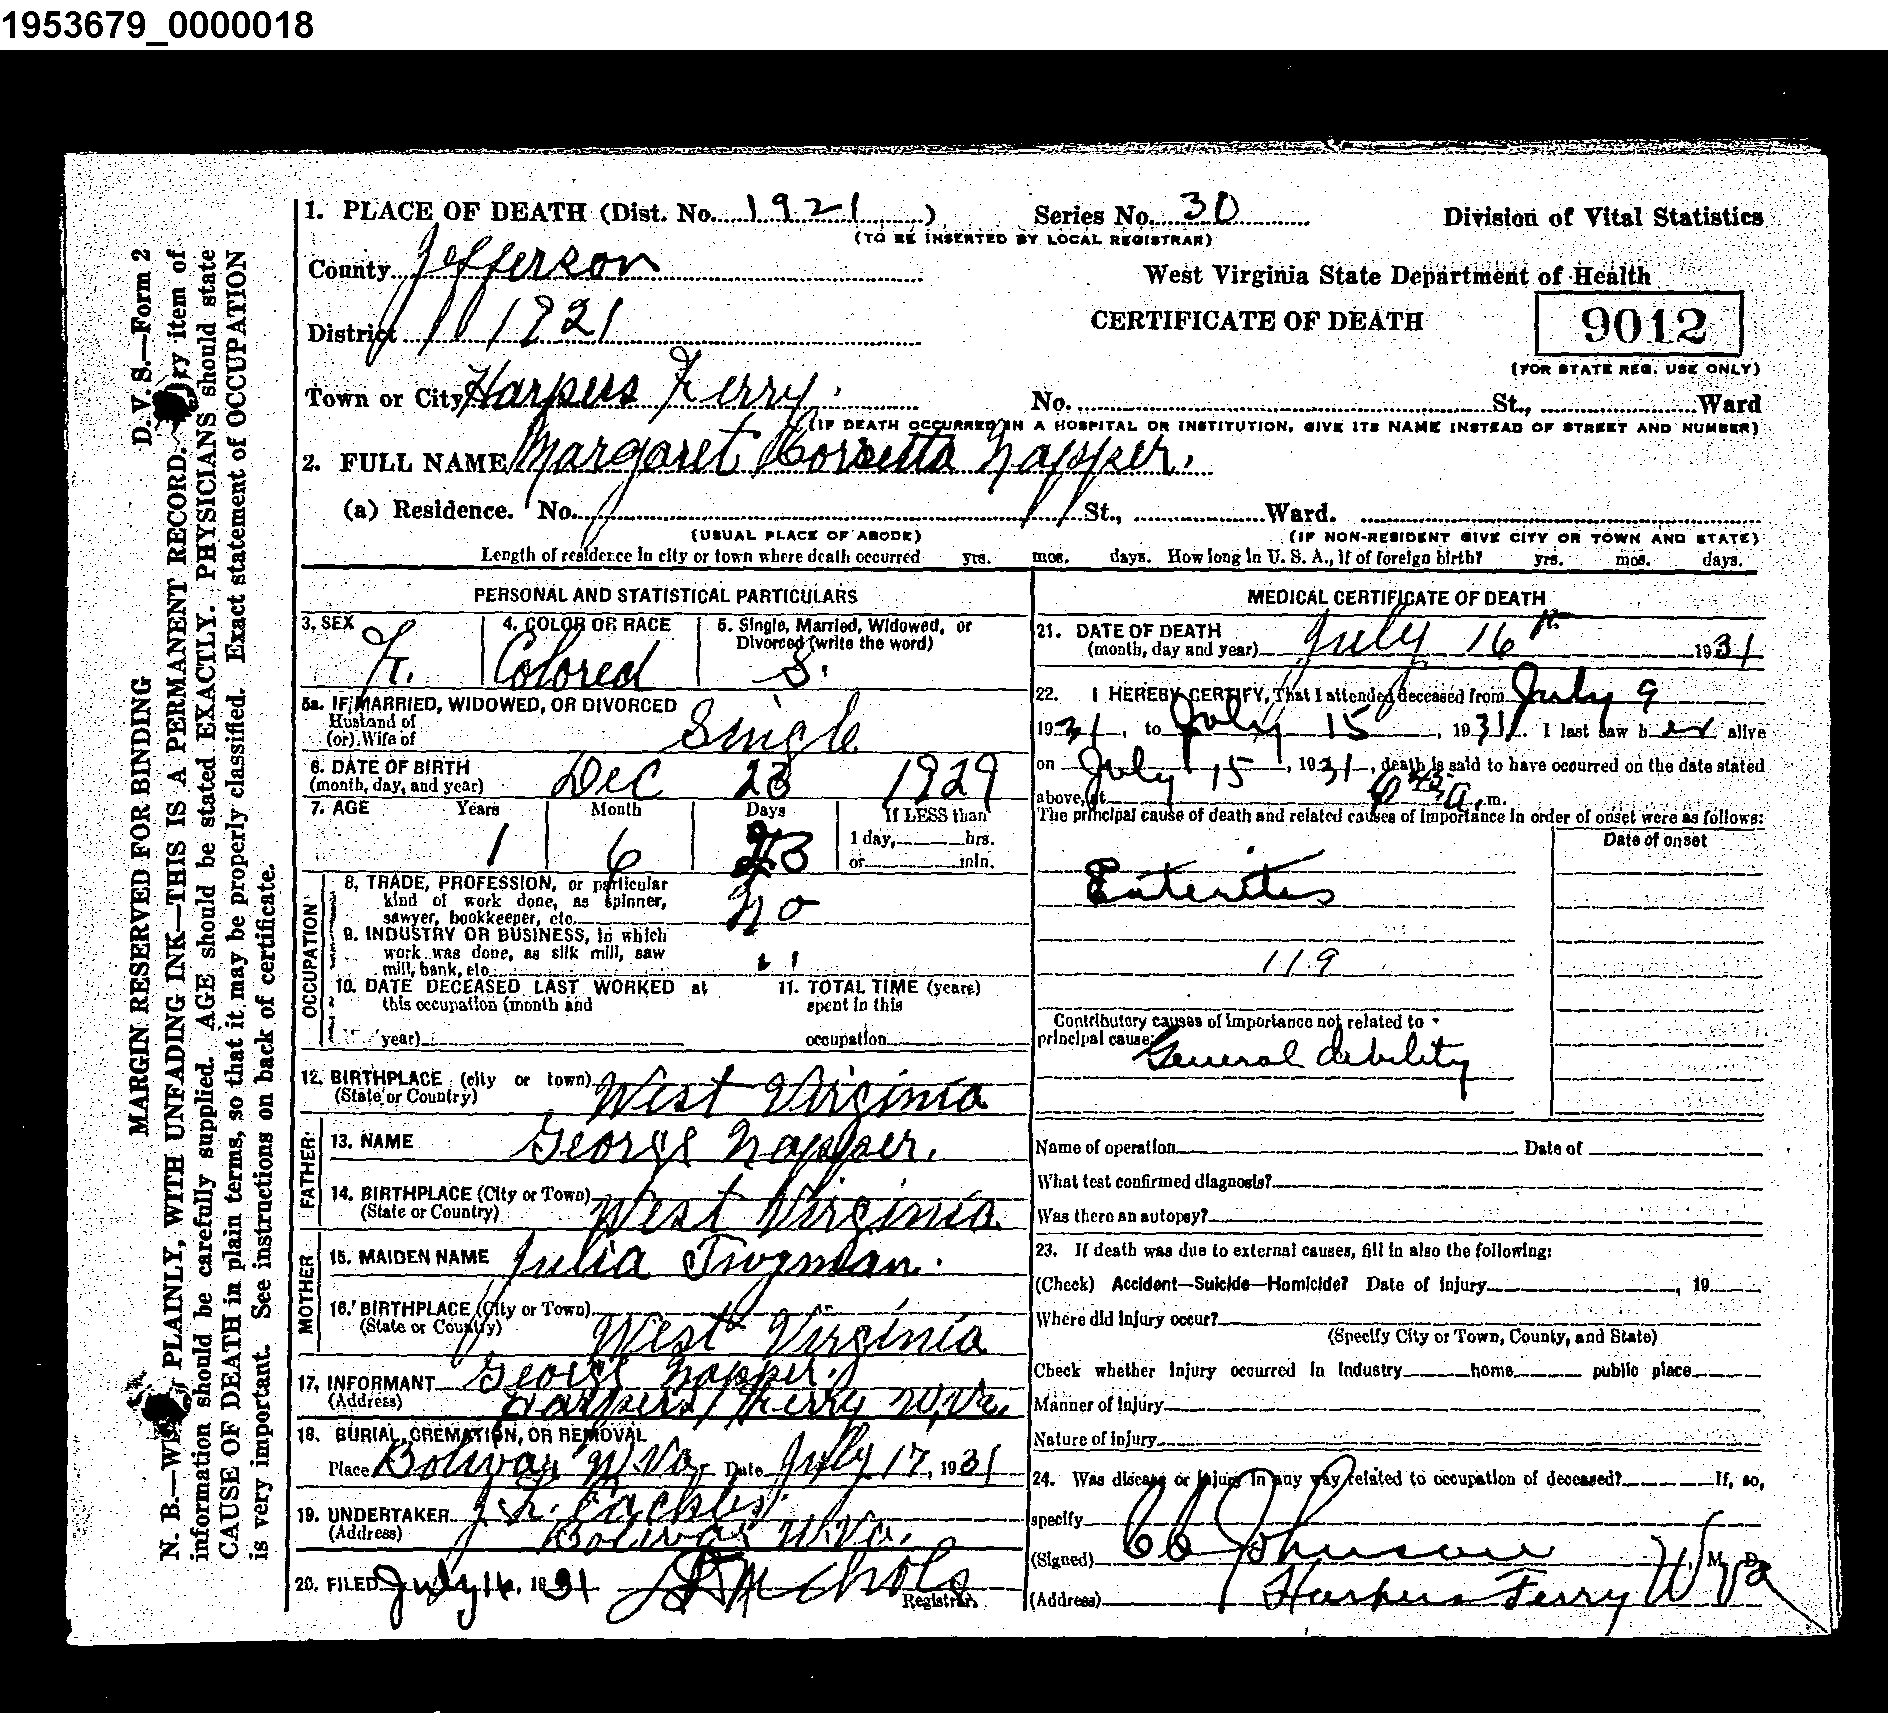 1953679_0000018
1. PLACE OF DEATH (Dist. No. 1921) Series No. 30 Division of Vital Statistics
(TO BE INSERTED BY LOCAL REGISTRAR)
County Jefferson West Virginia State Department of Health
District 1921 CERTIFICATE OF DEATH 9012
(FOR STATE REG. USE ONLY)
Town or City Harpers Ferry. No. St., Ward
(IF DEATH OCCURRED IN A HOSPITAL OR INSTITUTION, GIVE ITS NAME INSTEAD OF STREET AND NUMBER)
2. FULL NAME Margaret Napper.
(a) Residence. No. St., Ward.
(USUAL PLACE OF ABODE) (IF NON-RESIDENT GIVE CITY OR TOWN AND STATE)
Length of residence in city or town where death occurred yrs. mos. days. How long in U. S. A., if of foreign birth? yrs. mos. days.
PERSONAL AND STATISTICAL PARTICULARS
3. SEX 4. COLOR OR RACE 5. Single, Married, Widowed, or
Divorced (write the word)
F. Colored S.
5a. IF MARRIED, WIDOWED, OR DIVORCED
Husband of
(or) Wife of Single
6. DATE OF BIRTH
(month, day, and year) Dec 23 1929
7. AGE Years Month Days If LESS than
1 day, hrs.
or min.
1 6 23
OCCUPATION
8. TRADE, PROFESSION, or particular
kind of work done, as spinner,
sawyer, bookkeeper, etc. no
9. INDUSTRY OR BUSINESS, in which
work was done, as silk mill, saw
mill, bank, etc. " "
10. DATE DECEASED LAST WORKED at 11. TOTAL TIME (years)
this occupation (month and spent in this
year) occupation
12. BIRTHPLACE (city or town)
(State or Country) West Virginia
FATHER
13. NAME George Napper.
14. BIRTHPLACE (City or Town)
(State or Country) West Virginia
MOTHER
15. MAIDEN NAME Julia Twyman.
16. BIRTHPLACE (City or Town)
(State or Country) West Virginia
17. INFORMANT George Napper.
(Address) Harpers Ferry W.Va.
18. BURIAL, CREMATION, OR REMOVAL
Place Bolivar W.Va. Date July 17, 1931
19. UNDERTAKER
(Address) Bolivar W.Va.
20. FILED July 16, 1931 Nichols
Registrar.
MEDICAL CERTIFICATE OF DEATH
21. DATE OF DEATH
(month, day and year) July 16th 1931
22. I HEREBY CERTIFY, That I attended deceased from July 9
1931, to July 15, 1931. I last saw her alive
on July 15, 1931, death is said to have occurred on the date stated
above, at 6 45 a. m.
The principal cause of death and related causes of importance in order of onset were as follows:
Date of onset
Enteritis
119
Contributory causes of importance not related to
principal cause:
General debility
Name of operation Date of
What test confirmed diagnosis?
Was there an autopsy?
23. If death was due to external causes, fill in also the following:
(Check) Accident—Suicide—Homicide? Date of injury , 19
Where did injury occur?
(Specify City or Town, County, and State)
Check whether injury occurred in industry home public place
Manner of injury
Nature of injury
24. Was disease or injury in any way related to occupation of deceased? If, so,
specify
(Signed) Johnson M. D.
(Address) Harpers Ferry W Va
D. V. S.—Form 2
MARGIN RESERVED FOR BINDING
N. B.—WRITE PLAINLY, WITH UNFADING INK—THIS IS A PERMANENT RECORD. Every item of
information should be carefully supplied. AGE should be stated EXACTLY. PHYSICIANS should state
CAUSE OF DEATH in plain terms, so that it may be properly classified. Exact statement of OCCUPATION
is very important. See instructions on back of certificate.